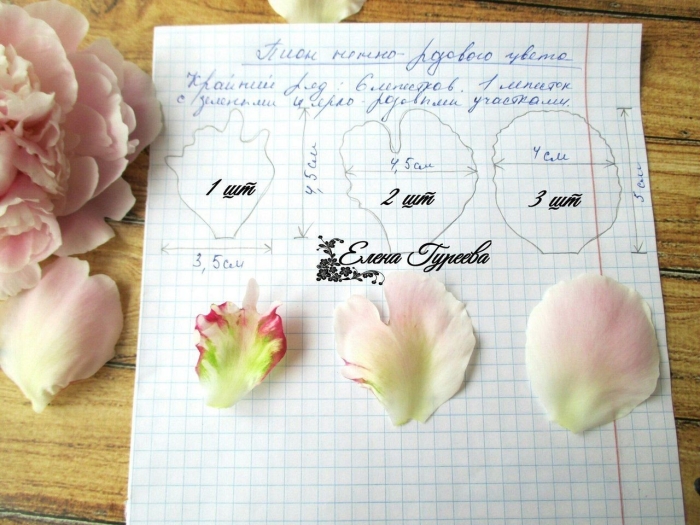 Пион нежно-розового цвета
Крайний ряд: 6 лепестков. 1 лепесток
с зелеными и ярко-розовыми участками.
1 шт
3,5см
4,5см
4,5см
2 шт
4см
3 шт
5см
Елена Гуреева